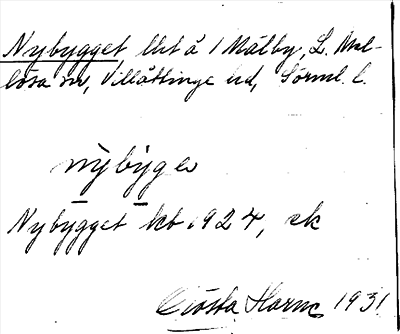 Nybygget, lht å 1 Mälby, L. Mel-
lösa sn, Villåttinge hd, Sörml. l.
nybyge
Nybygget kb 1924, ek
Gösta Harns 1931